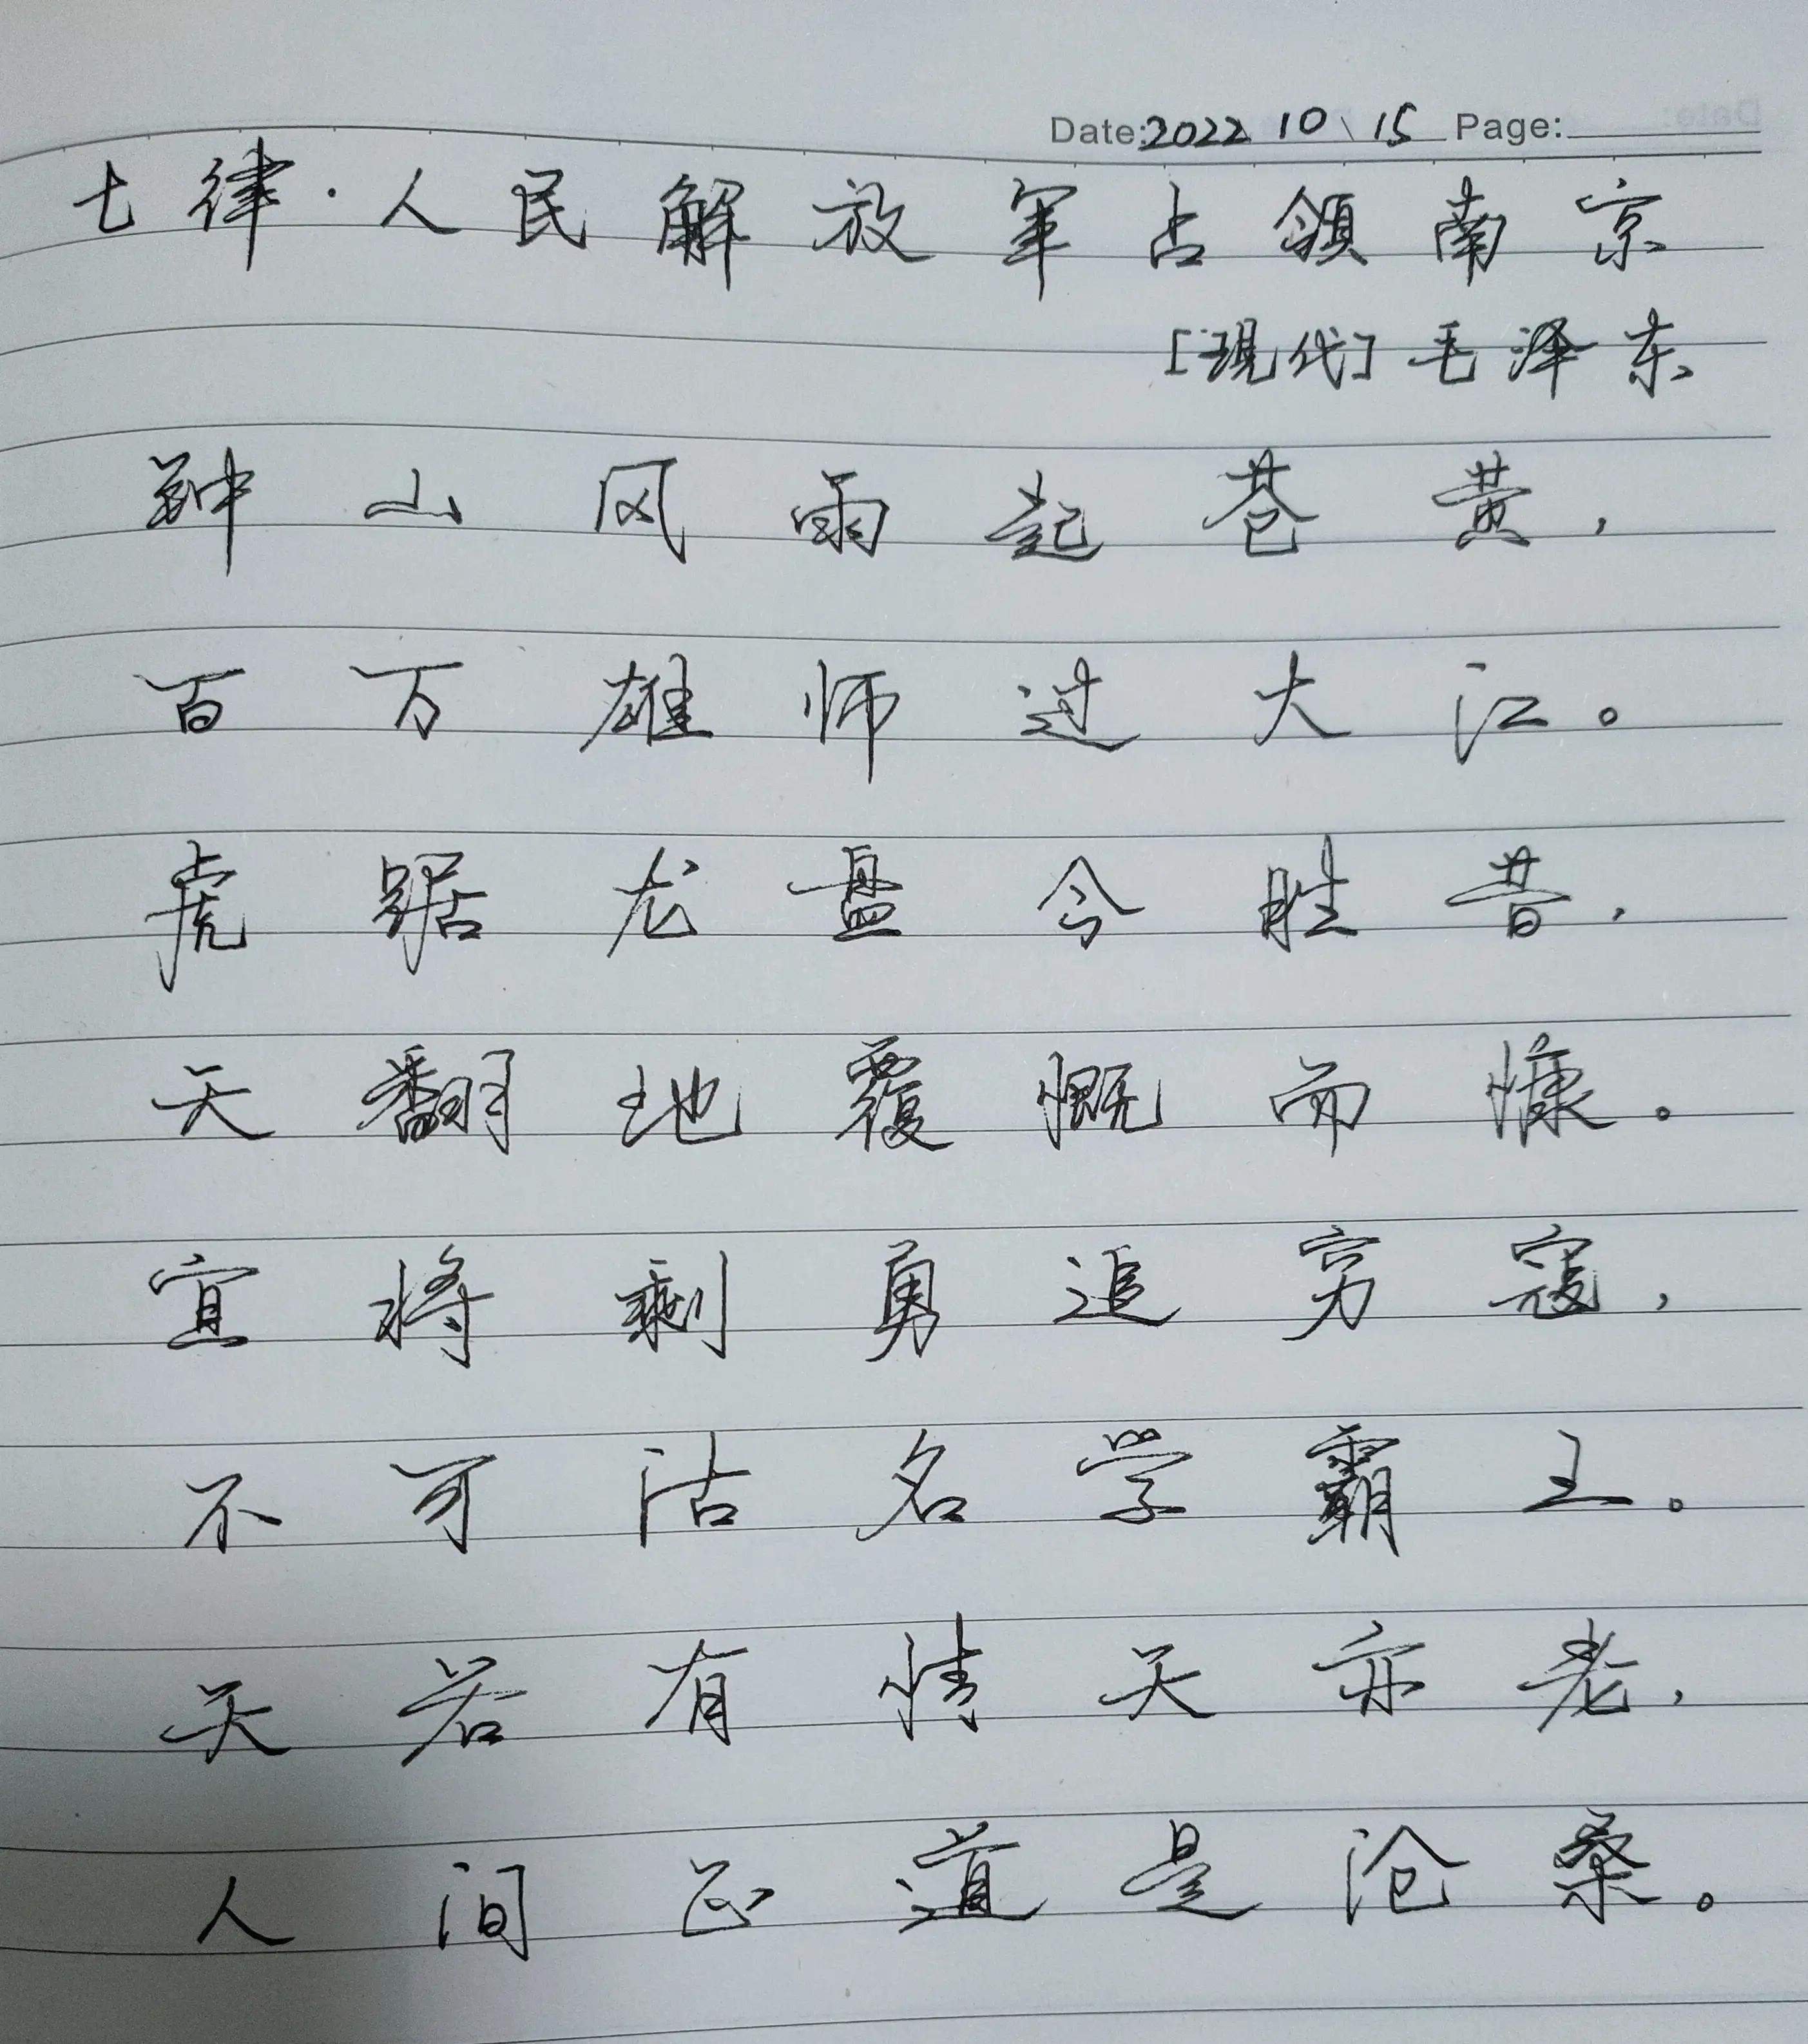 Date:2022 10 \ 15 Page:
七律·人民解放军占领南京
[现代]毛泽东
钟山风雨起苍黄，
百万雄师过大江。
虎踞龙盘今胜昔，
天翻地覆慨而慷。
宜将剩勇追穷寇，
不可沽名学霸王。
天若有情天亦老，
人间正道是沧桑。